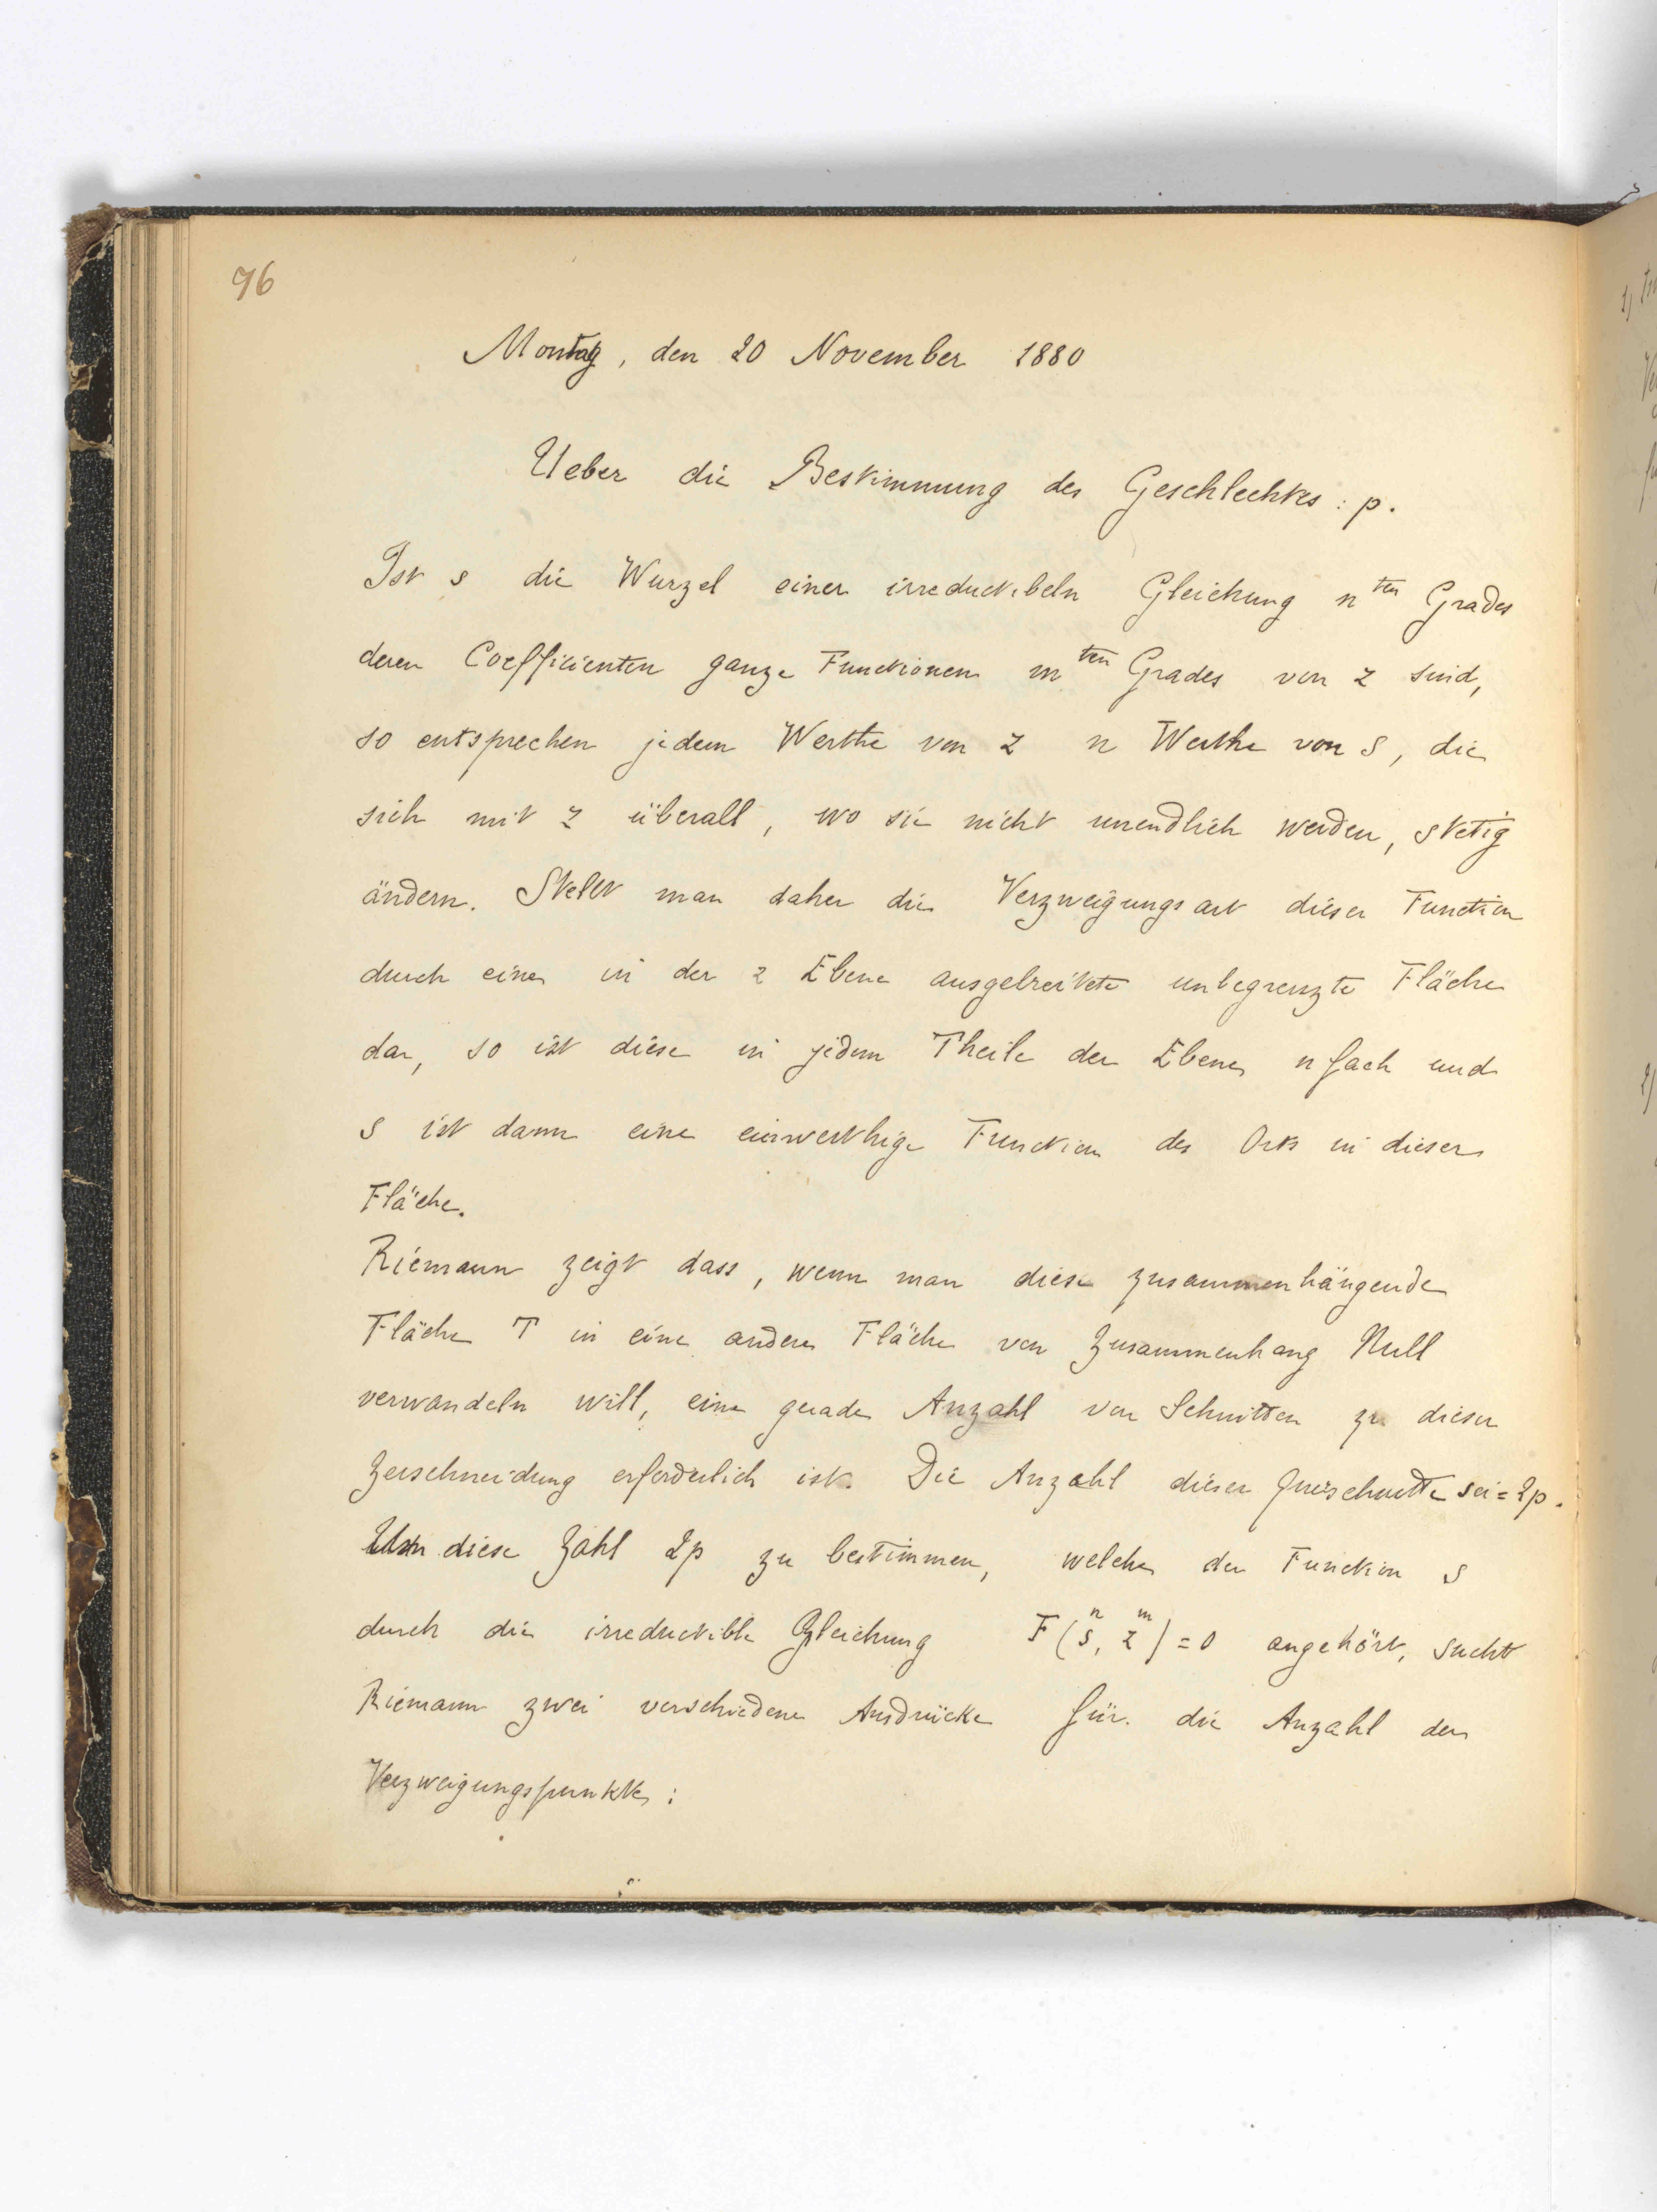 96
Montag, den 20 November 1880
Ueber die Bestimmung des Geschlechtes: p.
Ist s die Wurzel einer irreductibeln Gleichung n ten Grades
deren Coefficienten ganze Functionen m ten Grades von z sind,
so entsprechen jedem Werthe von z n Werthe von s, die
sich mit z überall, wo sie nicht unendlich werden, stetig
ändern. Stellt man daher die Verzweigungsart dieser Function
durch eine in der z Ebene ausgebreitete unbegrenzte Fläche
dar, so ist diese in jedem Theile der Ebene n fach und
s ist dann eine einwerthige Function des Orts in dieser
Fläche.
Riemann zeigt dass, wenn man diese zusammenhängende
Fläche T in eine andere Fläche von Zusammenhang Null
verwandeln will, eine gerade Anzahl von Schnitten zu dieser
Zerschneidung erforderlich ist. Die Anzahl dieser Querschnitte sei = 2p.
Um diese Zahl 2p zu bestimmen, welche der Function s
durch die irreductible Gleichung F(s^n, z^m) = 0 angehört, sucht
Riemann zwei verschiedene Ausdrücke für die Anzahl der
Verzweigungspunkte: